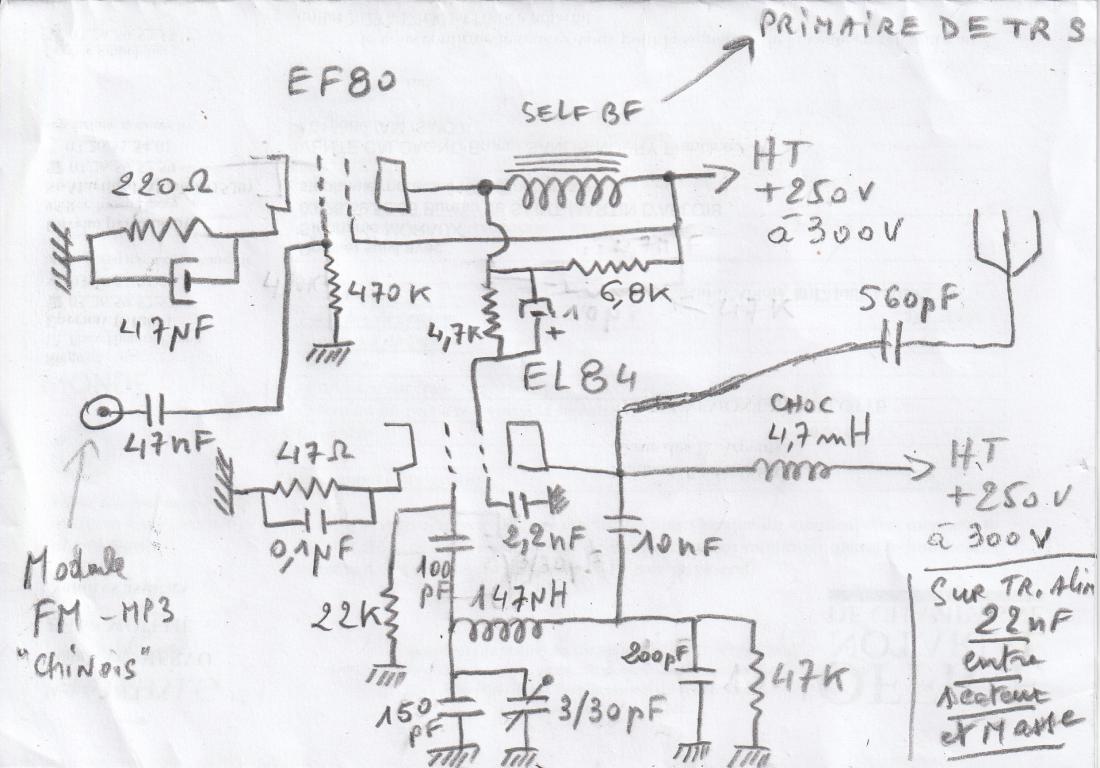 PRIMAIRE DE TRS
EF80
SELF BF
HT
+250V
à 300V
220Ω
47µF
470K
6,8K
4,7K
+
560pF
EL84
CHOC
4,7mH
HT
+250V
à 300V
47nF
47Ω
0,1µF
2,2nF
10nF
100
pF
22K
147µH
Module
FM-MP3
"Chinois"
200pF
47K
150
pF
3/30pF
Sur TR. Alim
22nF
entre
secteur
et Masse